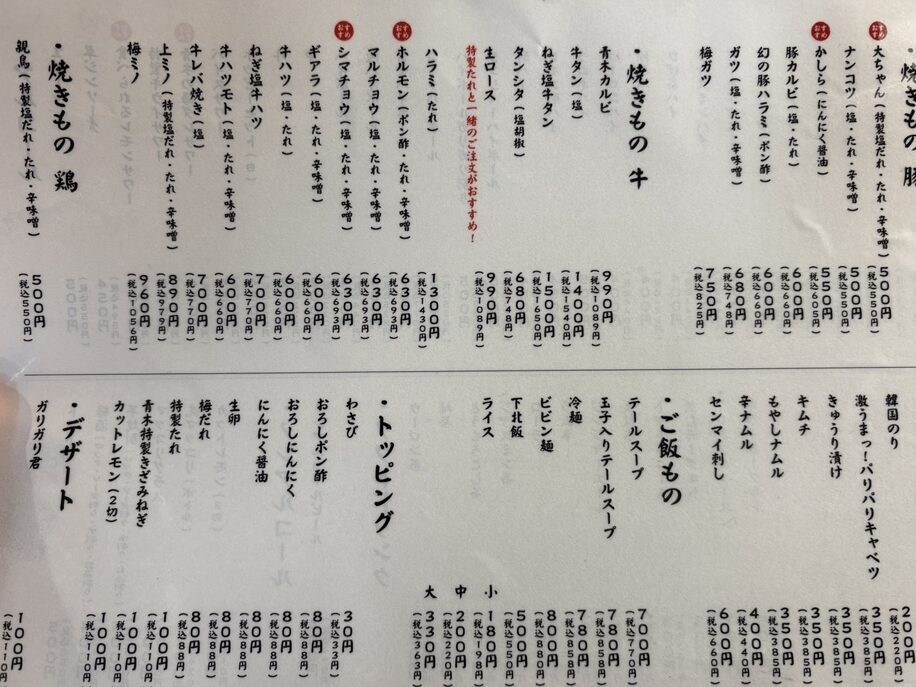 焼きもの 豚
おすすめ
大ちゃん（特製塩だれ・たれ・辛味噌） 500円（税込550円）
ナンコツ（塩・たれ・辛味噌） 500円（税込550円）
おすすめ
かしら（にんにく醤油） 550円（税込605円）
豚カルビ（塩・たれ） 600円（税込660円）
幻の豚ハラミ（ポン酢） 600円（税込660円）
ガツ（塩・たれ・辛味噌） 680円（税込748円）
梅ガツ 750円（税込825円）
・焼きもの 牛
青木カルビ 990円（税込1089円）
牛タン（塩） 1400円（税込1540円）
ねぎ塩牛タン 1500円（税込1650円）
タンシタ（塩胡椒） 680円（税込748円）
生ロース 990円（税込1089円）
特製たれと一緒のご注文がおすすめ！
ハラミ（たれ） 1300円（税込1430円）
おすすめ
ホルモン（ポン酢・たれ・辛味噌） 630円（税込693円）
マルチョウ（塩・たれ・辛味噌） 630円（税込693円）
おすすめ
シマチョウ（塩・たれ・辛味噌） 630円（税込693円）
ギアラ（塩・たれ・辛味噌） 600円（税込660円）
牛ハツ（塩・たれ） 600円（税込660円）
ねぎ塩牛ハツ 700円（税込770円）
牛ハツモト（塩・たれ・辛味噌） 600円（税込660円）
牛レバ焼き（塩） 700円（税込770円）
上ミノ（特製塩だれ・たれ・辛味噌） 890円（税込979円）
梅ミノ 960円（税込1056円）
・焼きもの 鶏
親鳥（特製塩だれ・たれ・辛味噌） 500円（税込550円）
韓国のり 200円（税込220円）
激うまっ！パリパリキャベツ 350円（税込385円）
きゅうり漬け 350円（税込385円）
キムチ 350円（税込385円）
もやしナムル 350円（税込385円）
辛ナムル 400円（税込440円）
センマイ刺し 600円（税込660円）
・ご飯もの
テールスープ 700円（税込770円）
玉子入りテールスープ 780円（税込858円）
冷麺 780円（税込858円）
ビビン麺 800円（税込880円）
下北飯 500円（税込550円）
ライス 小 180円（税込198円）
中 200円（税込220円）
大 330円（税込363円）
・トッピング
わさび 30円（税込33円）
おろしポン酢 80円（税込88円）
おろしにんにく 80円（税込88円）
にんにく醤油 80円（税込88円）
生卵 80円（税込88円）
梅だれ 80円（税込88円）
特製たれ 100円（税込110円）
青木特製きざみねぎ 100円（税込110円）
カットレモン（2切） 100円（税込110円）
・デザート
ガリガリ君 100円（税込110円）